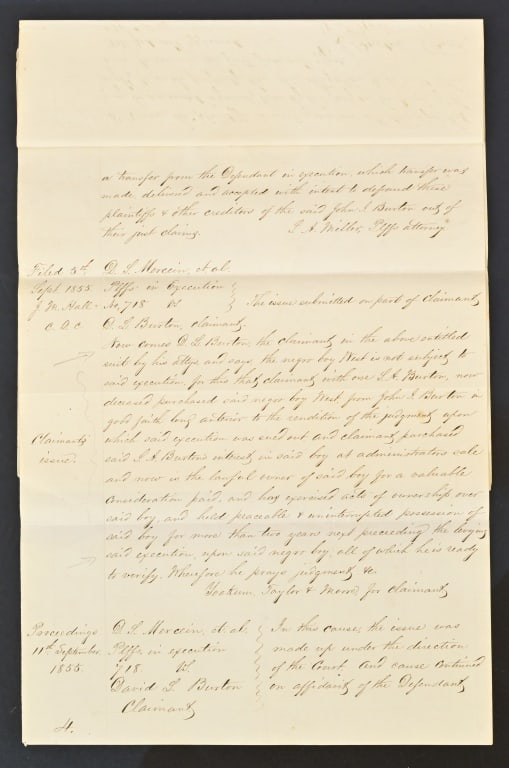 a transfer from the Defendant in execution, which transfer was
made, delivered and accepted with intent to defraud these
plaintiffs & other creditors of the said John I. Burton out of
their just claims. J. A. Miller, Plffs attorney
Filed 5th D. S. Mercein, et. al.
Sept 1855. Plffs in Execution
J M. Hall No, 718 vs The issue submitted on part of Claimant,
C. D. C D. L. Burton, claimant,
Now comes D L Burton, the claimant in the above entitled
suit by his attys and says the negro boy West is not subject to
said execution, for this that claimant with one S. A. Burton, now
deceased purchased said negro boy West, from John I Burton in
good faith long anterior to the rendition of the judgment, upon
Claimants which said execution was sued out and claimant, purchased
issue. said S A Burtons interest in said boy at administrators sale
and now is the lawful owner of said boy for a valuable
consideration paid, and has exercised acts of ownership over
said boy, and held peaceable & uninterrupted possession of
said boy for more than two years next preceeding the levying
said execution upon said negro boy. all of which he is ready
to verify. Wherefore he prays judgment, &c
Yoakum, Taylor & for Claimant,
Proceedings D. S. Mercein, et. al. In this cause, the issue was
11th September Plffs in execution made up under the direction
1855. 718 vs. of the Court and cause continued
David L Burton on affidavit of the Defendant,
Claimant,
4.